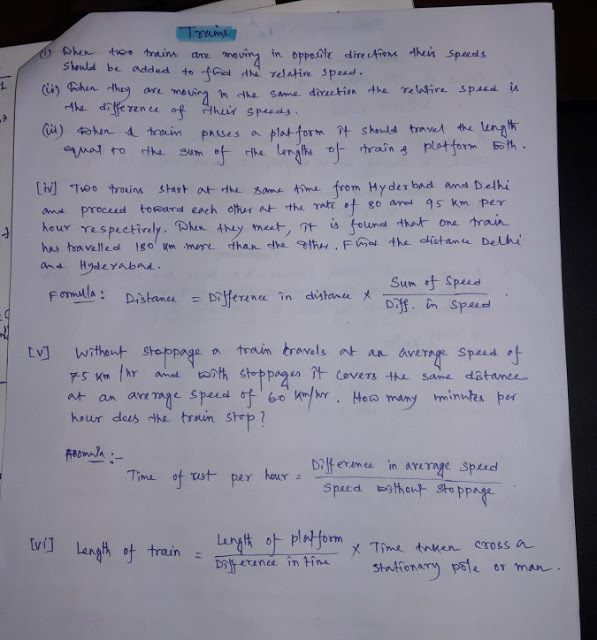 Trains
(i) When two trains are moving in opposite directions their speeds
should be added to find the relative speed.
(ii) When they are moving in the same direction the relative speed is
the difference of their speeds.
(iii) When a train passes a platform it should travel the length
equal to the sum of the lengths of train & platform both.
[iv] Two trains start at the same time from Hyderbad and Delhi
and proceed toward each other at the rate of 80 and 95 Km per
hour respectively. When they meet, it is found that one train
has travelled 180 km more than the other. Find the distance Delhi
and Hyderabad.
Formula : Distance = Difference in distance × Sum of Speed / Diff. in Speed .
[v] Without stoppage a train travels at an average speed of
75 Km/hr and with stoppages it covers the same distance
at an average speed of 60 Km/hr. How many minutes per
hour does the train stop?
Formula :-
Time of rest per hour = Difference in average speed / Speed without stoppage .
[vi] Length of train = Length of platform / Difference in time × Time taken cross a
stationary pole or man.